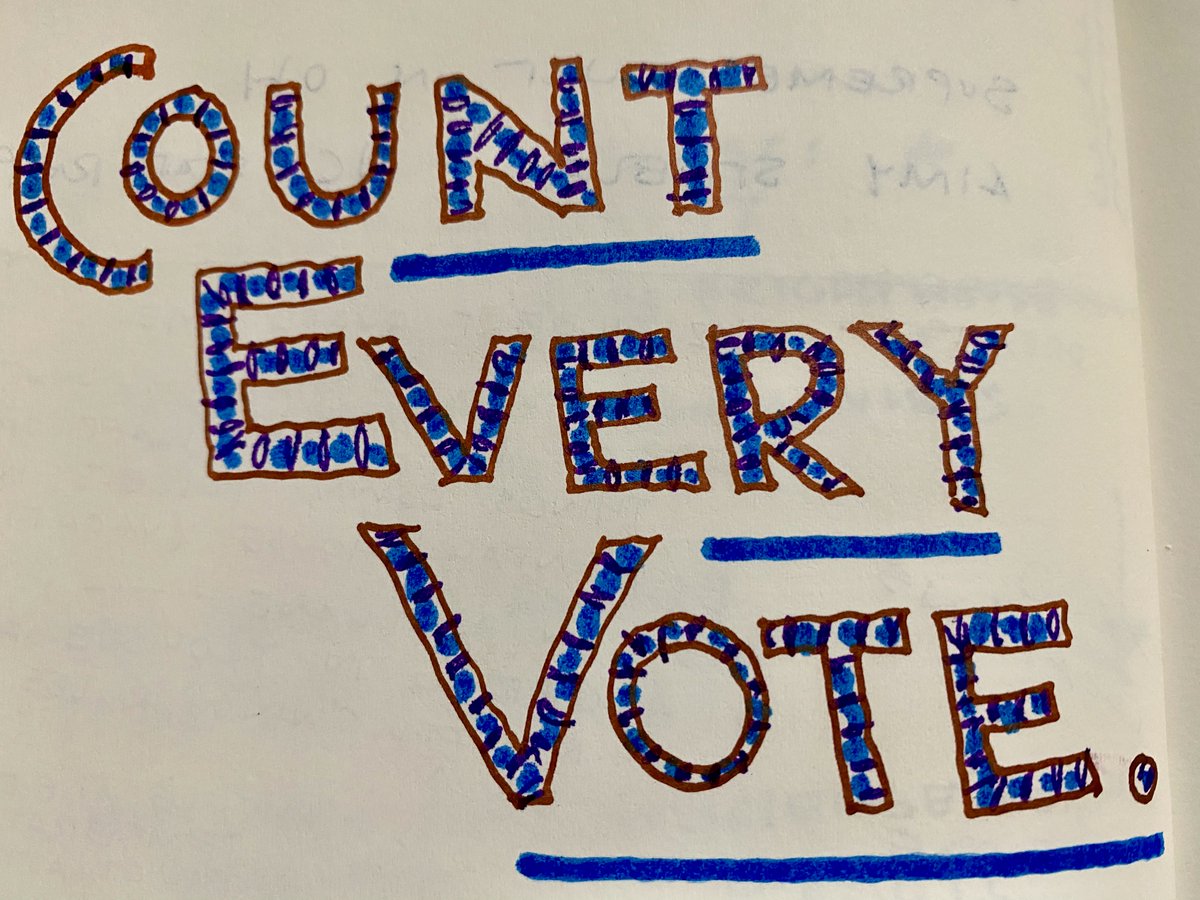 COUNT
EVERY
VOTE.